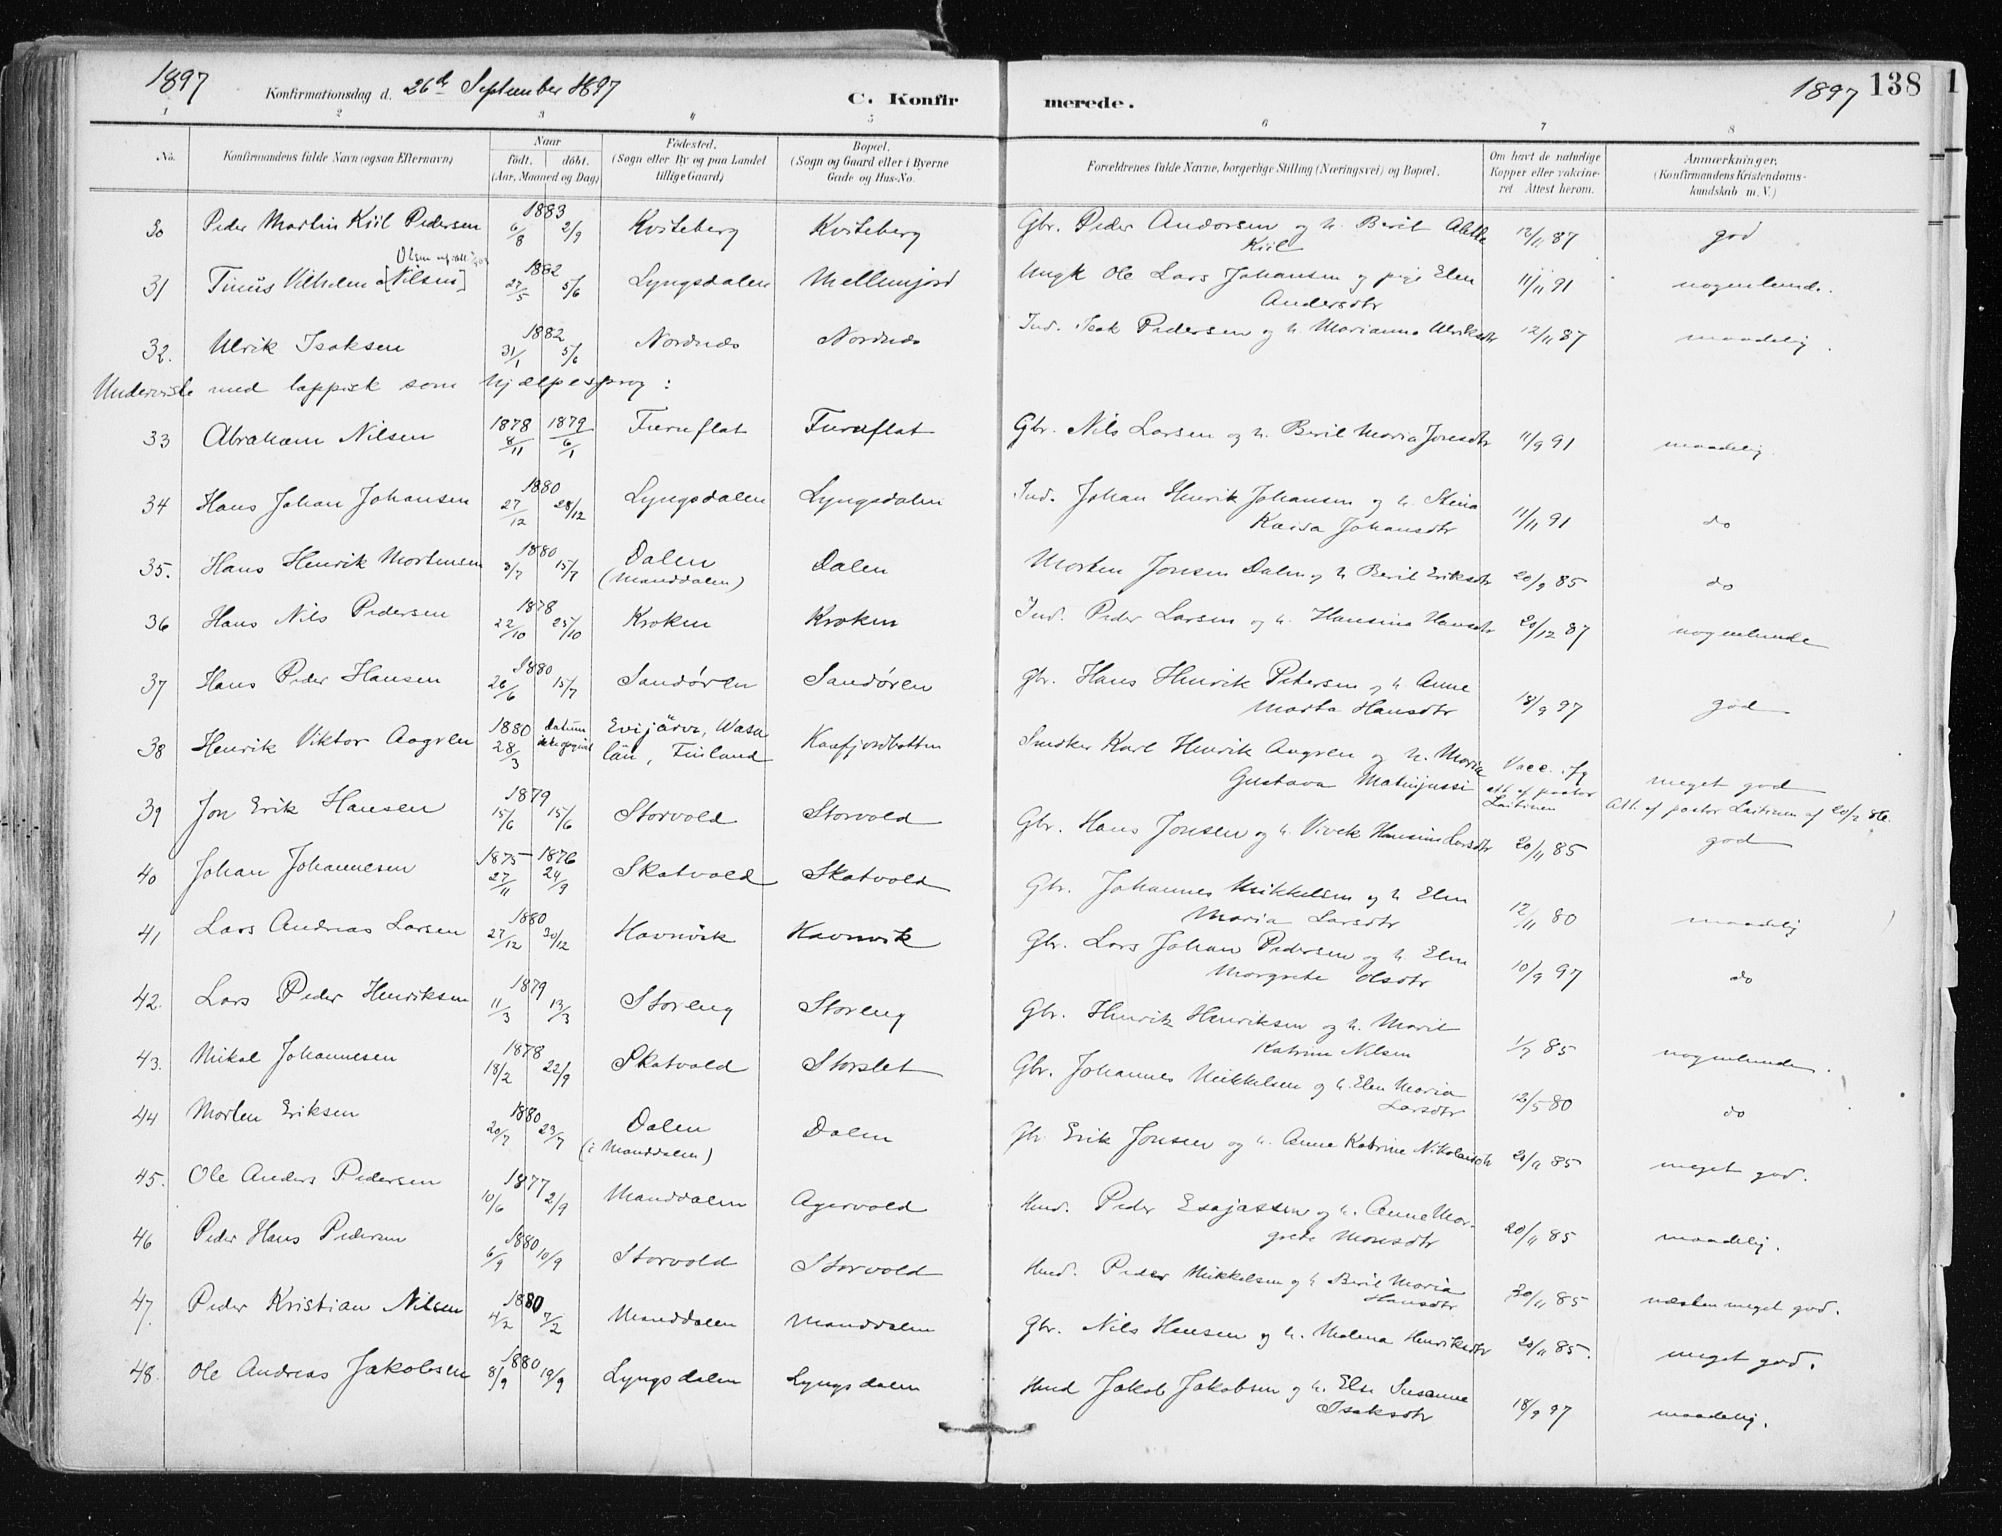 1897 Konfirmationsdag d. 26de September 1897 C. Konfirmerede. 1897 138
1 2 3 4 5 6 7 8
No. Konfirmandens fulde Navn (ogsaa Efternavn) Naar født. døbt. (Aar, Maaned og Dag) Fødested. (Sogn eller By og paa Landet tillige Gaard) Bopæl. (Sogn og Gaard eller i Byerne Gade og Hus-No. Forældrenes fulde Navne, borgerlige Stilling (Næringsvei) og Bopæl. Om havt de naturlige Kopper eller vakcineret. Attest herom. Anmærkninger. (Konfirmandens Kristendomskundskab m. V.)
30 Peder Martin Kiil Pedersen 1883 6/8 2/9 Kviteberg Kviteberg Gbr. Peder Andersen og h. Berit Alette Kiil 12/11 87 god
31 Tinus Vilhelm [Nilsen] Olsen 1882 27/5 5/6 Lyngsdalen Mellemjord Ungk Ole Lars Johansen og pige Elen Andersdtr 11/11 91 nogenlunde.
32. Ulrik Isaksen 1882 31/1 5/6 Nordnæs Nordnæs Ind. Isak Pedersen og h. Marianna Ulriksdtr 12/11 87 maadelig.
Underviste med lappisk som hjælpesprog:
33 Abraham Nilsen 1878 8/11 1879 6/1 Furuflat Furuflat Gbr. Nils Larsen og h. Beril Maria Jonsdtr 11/9 91 maadelig.
34 Hans Johan Johansen 1880 27/12 28/12 Lyngsdalen Lyngsdalen Ind. Johan Henrik Johansen og h. Stina Kaisa Johansdtr 11/11 91 do
35. Hans Henrik Mortensen 1880 3/7 15/7 Dalen (Manddalen) Dalen Morten Jonsen Dalen og h Beril Eriksdtr 20/9 85 do
36 Hans Nils Pedersen 1878 22/10 25/10 Kroken Kroken Ind. Peder Larsen og h. Hansina Hansdtr 20/12 87 nogenlunde
37 Hans Peder Hansen 1880 26/6 15/7 Sandøren Sandøren Gbr. Hans Henrik Petersen og h. Anne Marta Hansdtr 18/9 97 god
38 Henrik Viktor Aagren 1880 28/3 datum ikke opgivet Evijärvi, Wasa län, Finland Kaafjordbotten Smdker Karl Henrik Aagren og h. Maria Gustava Matinjussi Vacc. fg att. af pastor Laitinen meget god Att. af pastor Laitinen af 20/2
39 Jon Erik Hansen 1879 15/6 15/6 Storvold Storvold Gbr. Hans Jonsen og h. Vivek Hansine Larsdtr 20/11 85 god
40 Johan Johannesen 1875 27/11 1876 24/9 Skatvold Skatvold Gbr. Johannes Mikkelsen og h Elen Maria Larsdtr 12/11 80 maadelig
41 Lars Andreas Larsen 1880 27/12 30/12 Havnvik Havnvik Gbr. Lars Johan Pedersen og h. Elen Margrete Olsdtr 10/9 97 do
42. Lars Peder Henriksen 1879 11/3 13/3 Storeng Storeng Gbr. Henrik Henriksen og h. Marit Katrine Nilsen 1/7 85 nogenlunde.
43. Mikal Johannesen 1878 18/2 22/9 Skatvold Storslet Gbr. Johannes Mikkelsen og h. Elen Maria Larsdtr 12/5 80 do
44 Morten Eriksen 1880 20/7 23/7 Dalen (i Manddalen) Dalen Gbr Erik Jonsen og h. Anne Katrine Nikolaisdtr 20/11 85 meget god.
45. Ole Anders Pedersen 1877 10/6 2/9 Manddalen Agervold Hmd. Peder Esajassen og h. Anne Margrete Monsdtr 20/11 85 maadelig.
46 Peder Hans Pedersen 1880 6/9 10/9 Storvold Storvold Hmd. Peder Mikkelsen og h Beril Maria Hansdtr 30/11 85 næsten meget god.
47. Peder Kristian Nilsen 1880 4/2 7/2 Manddalen Manddalen Gbr. Nils Hansen og h. Malena Henriksdtr 20/11 85. meget god.
48. Ole Andreas Jakobsen 1880 8/9 19/9 Lyngsdalen Lyngsdalen Hmd Jakob Jakobsen og h. Else Susanne Isaksdtr 18/9 97 maadelig.